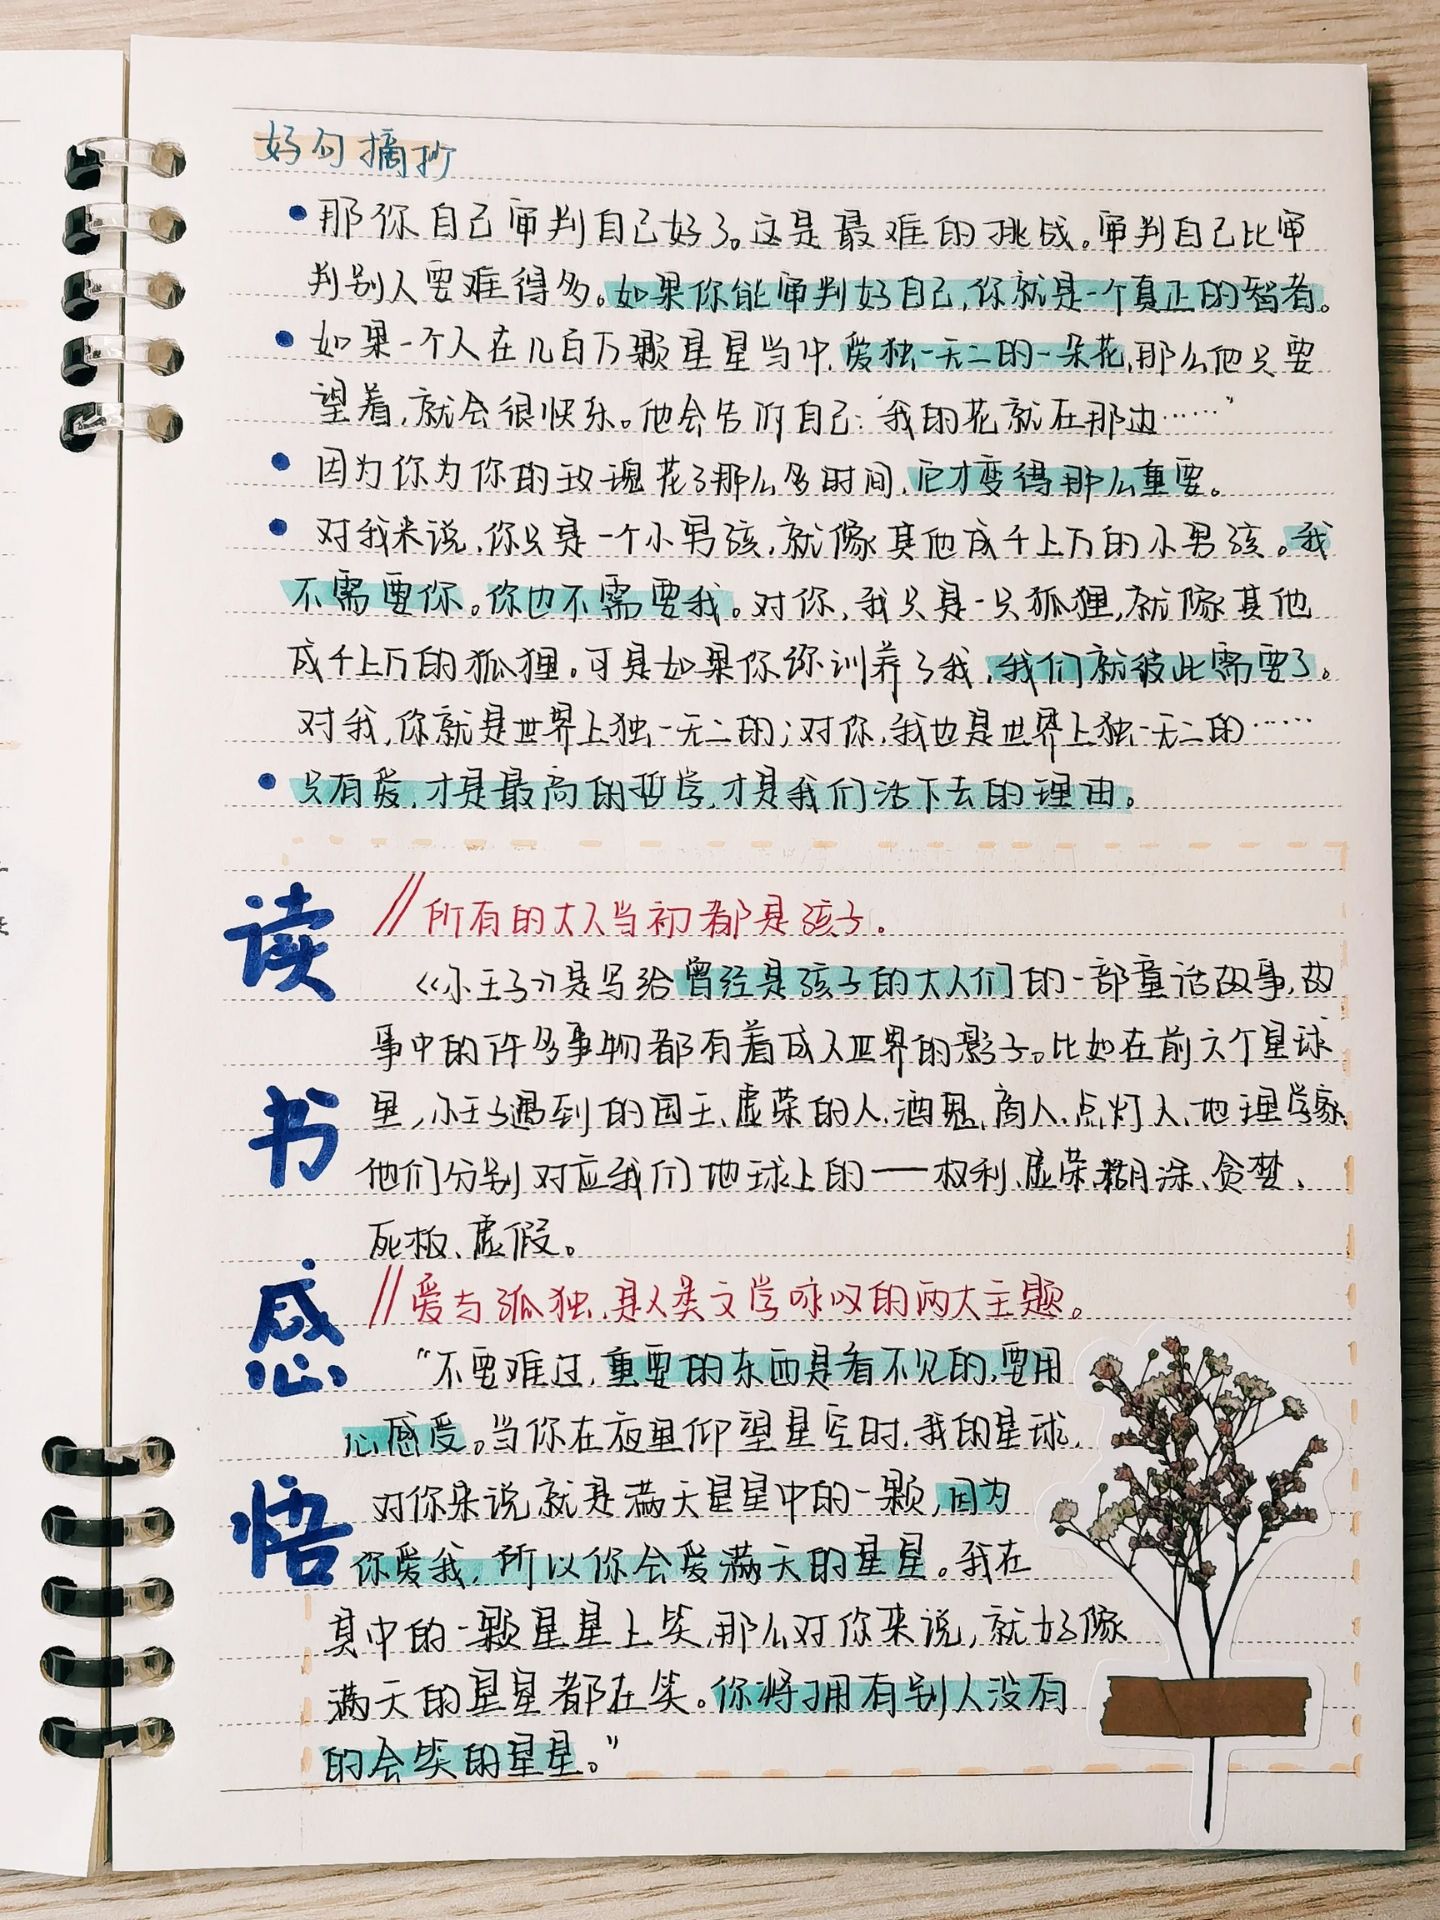 好句摘抄
• 那你自己审判自己好了。这是最难的挑战。审判自己比审
判别人要难得多。如果你能审判好自己,你就是一个真正的智者。
• 如果一个人在几百万颗星星当中,爱独一无二的一朵花,那么他只要
望着,就会很快乐。他会告诉自己:“我的花就在那边……”
• 因为你为你的玫瑰花了那么多时间,它才变得那么重要。
• 对我来说,你只是一个小男孩,就像其他成千上万的小男孩。我
不需要你。你也不需要我。对你,我只是一只狐狸,就像其他
成千上万的狐狸。可是如果你训养了我,我们就彼此需要了。
对我,你就是世界上独一无二的;对你,我也是世界上独一无二的……
• 只有爱,才是最高的哲学,才是我们活下去的理由。
读书感悟
// 所有的大人当初都是孩子.
《小王子》是写给曾经是孩子的大人们的一部童话故事,故
事中的许多事物都有着成人世界的影子。比如在前六个星球
里,小王子遇到的国王、虚荣的人、酒鬼、商人、点灯人、地理学家,
他们分别对应我们地球上的——权利、虚荣、糊涂、贪婪、
死板、虚假。
// 爱与孤独,是人类文学咏叹的两大主题。
“不要难过,重要的东西是看不见的,要用
心感受。当你在夜里仰望星空时,我的星球,
对你来说就是满天星星中的一颗,因为
你爱我,所以你会爱满天的星星。我在
其中的一颗星星上笑,那么对你来说,就好像
满天的星星都在笑。你将拥有别人没有
的会笑的星星。”